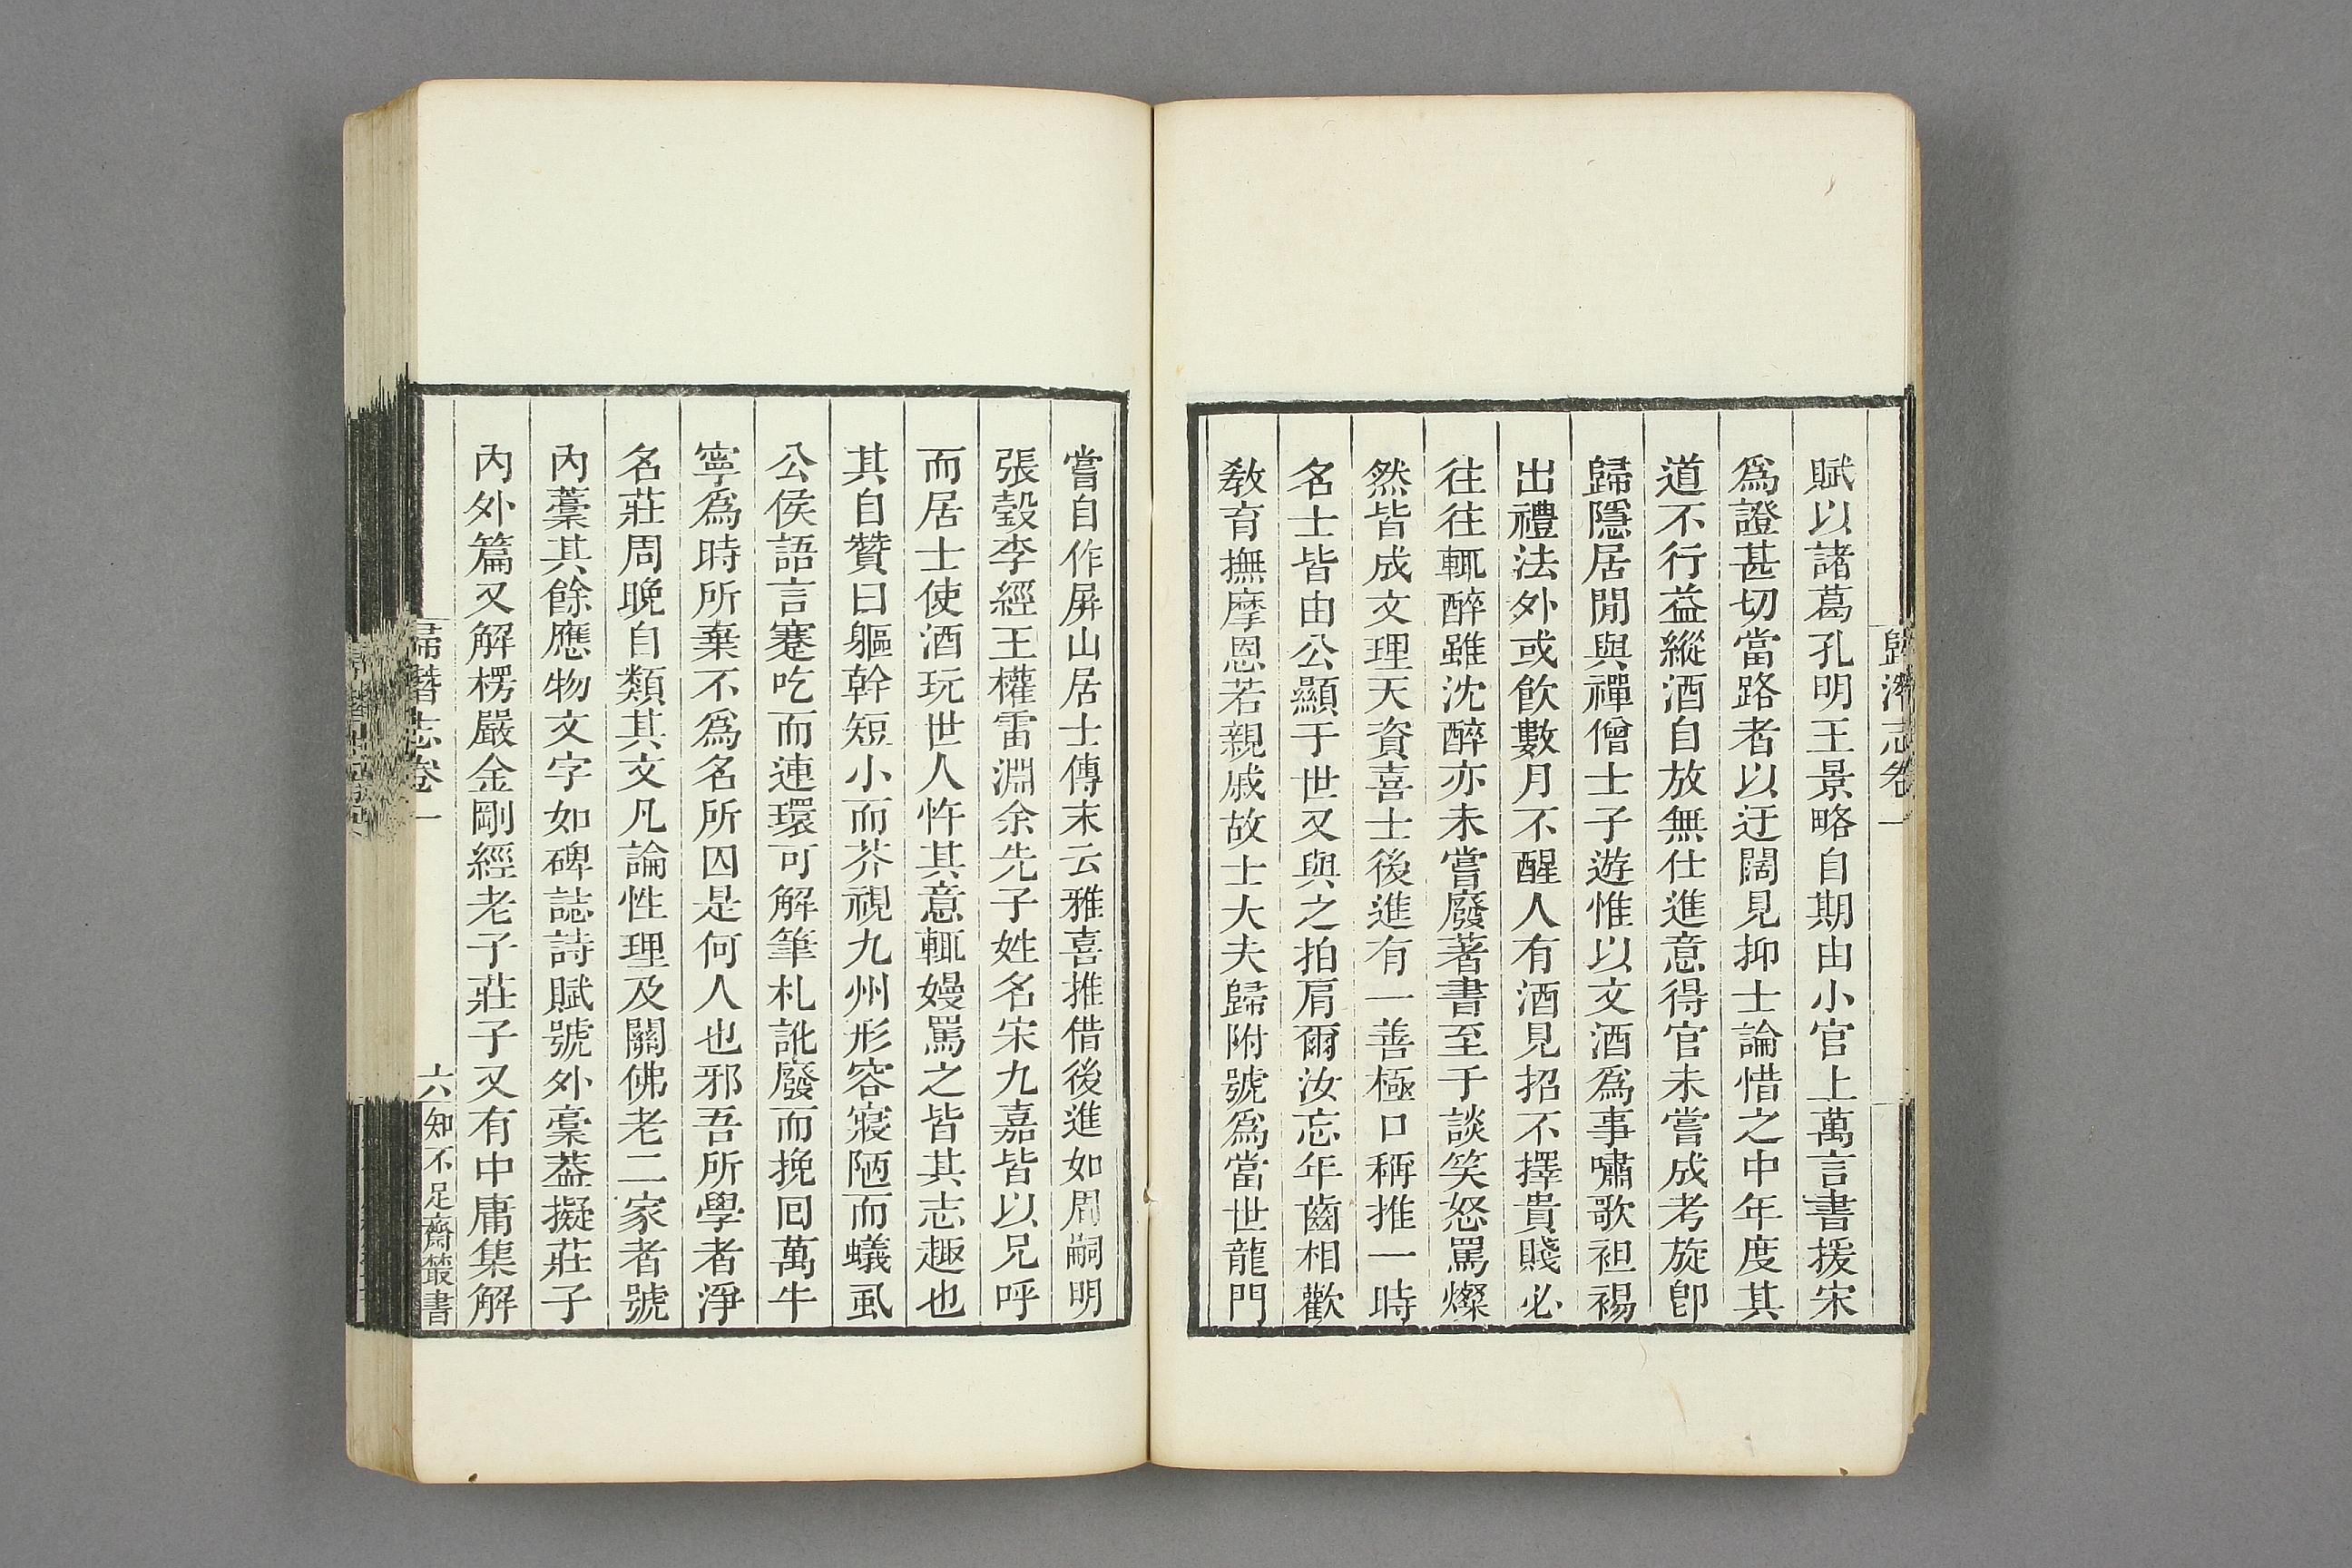 歸潛志卷一
賦以諸葛孔明王景略自期由小官上萬言書援宋
爲證甚切當路者以迂闊見抑士論惜之中年度其
道不行益縱酒自放無仕進意得官未嘗成考旋卽
歸隱居閒與禪僧士子遊惟以文酒爲事嘯歌袒裼
出禮法外或飮數月不醒人有酒見招不擇貴賤必
往往輒醉雖沈醉亦未嘗廢著書至于談笑怒罵燦
然皆成文理天資喜士後進有一善極口稱推一時
名士皆由公顯于世又與之拍肩爾汝忘年齒相歡
敎育撫摩恩若親戚故士大夫歸附號爲當世龍門
嘗自作屏山居士傳末云雅喜推借後進如周嗣明
張瑴李經王權雷淵余先子姓名宋九嘉皆以兄呼
而居士使酒玩世人忤其意輒嫚罵之皆其志趣也
其自贊曰軀幹短小而芥視九州形容寢陋而蟻虱
公侯語言蹇吃而連環可解筆札訛廢而挽回萬牛
寧爲時所棄不爲名所囚是何人也邪吾所學者淨
名莊周晚自類其文凡論性理及關佛老二家者號
內藁其餘應物文字如碑誌詩賦號外稾葢擬莊子
內外篇又解楞嚴金剛經老子莊子又有中庸集解
歸潛志卷一
六
知不足齋叢書